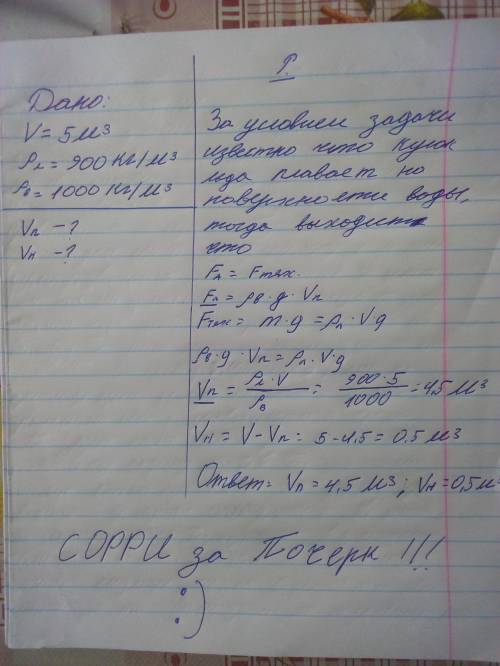 Р.
Дано:
V = 5 м³
ρл = 900 кг/м³
ρв = 1000 кг/м³
Vп - ?
Vн - ?
За условием задачи
известно что кусок
льда плавает но
поверхности воды,
тогда выходит
что
Fл = Fтяж.
Fп = ρв · g · Vп
Fтяж = m · g = ρл · Vg
ρв · g · Vп = ρл · V · g
Vп = ρл · V / ρв = 900 · 5 / 1000 = 4,5 м³
Vн = V - Vп = 5 - 4,5 = 0.5 м³
Ответ: Vп = 4,5 м³; Vн = 0,5 м³
СОРРИ за Почерк !!!
:)